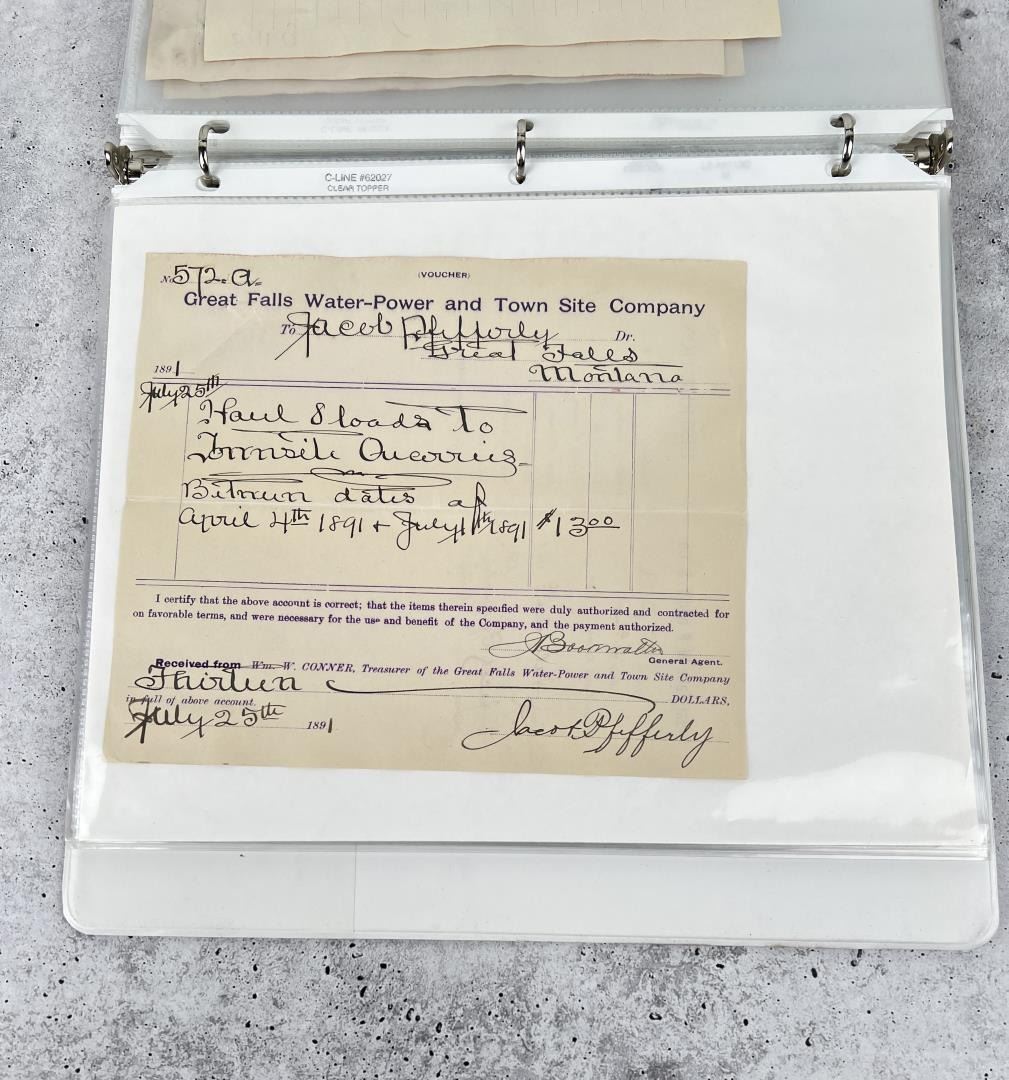 C-LINE #62027
CLEAR TOPPER
No 572. a.
(VOUCHER)
Great Falls Water-Power and Town Site Company
To Jacob Pfifferly Dr.
Great Falls
Montana
1891
July 25th
Haul 8 loads to
Quarries
Between dates of
April 4th 1891 + July 11th 1891 $13.00
I certify that the above account is correct; that the items therein specified were duly authorized and contracted for
on favorable terms, and were necessary for the use and benefit of the Company, and the payment authorized.
General Agent.
Received from Wm. W. CONNER, Treasurer of the Great Falls Water-Power and Town Site Company
Thirteen DOLLARS,
in full of above account.
July 25th 1891
Jacob Pfifferly